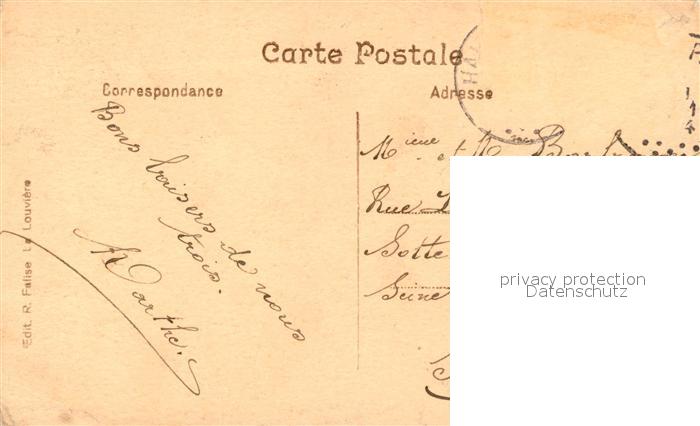 Carte Postale
Correspondance
Adresse
Bons baisers de nous
trois.
Marthe.
Edit. R. Falise La Louvière
et M.
Rue
Sotte
Seine
privacy protection
Datenschutz